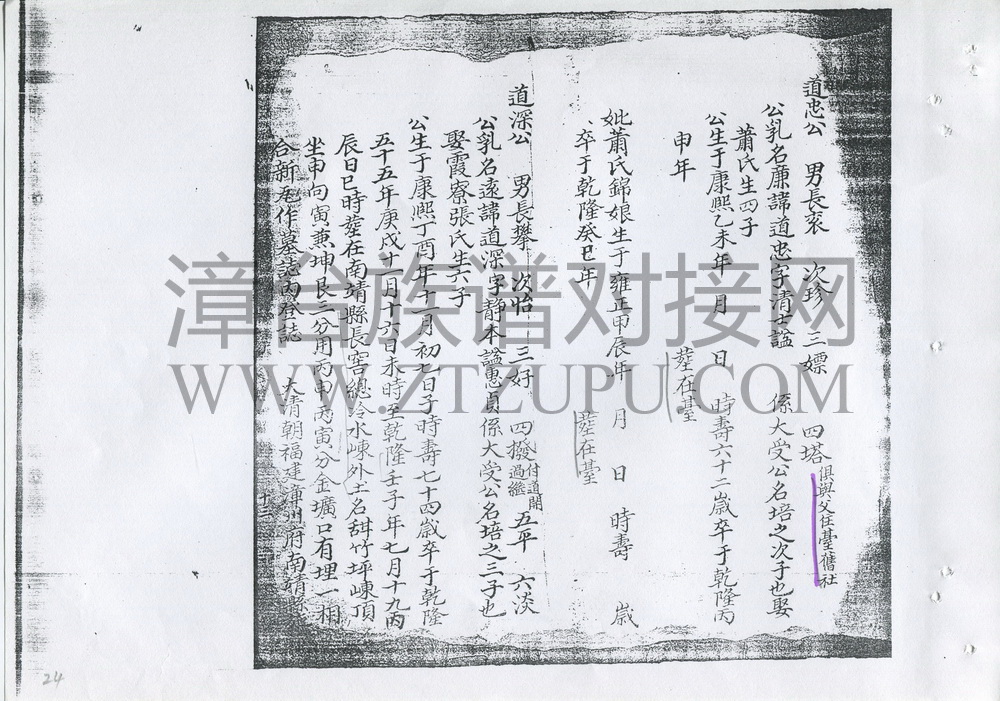 道忠公 男長袞 次珍 三嫖 四塔 俱與父住臺舊社
公乳名廉諱道忠字清士諡 係大受公名培之次子也娶
蕭氏生四子
公生于康熙乙未年 月 日 時壽六十二歲卒于乾隆丙
申年 塟在臺
妣蕭氏錦娘生于雍正甲辰年 月 日 時壽 歲
卒于乾隆癸巳年 塟在臺
道深公 男長攀 次怡 三好 四撥 付道開過繼 五平 六淡
公乳名遠諱道深字靜本諡惠貞係大受公名培之三子也
娶霞寮張氏生六子
公生于康熙丁酉年十月初九日子時壽七十四歲卒于乾隆
五十五年庚戌十一月十六日未時至乾隆壬子年七月十九丙
辰日巳時塟在南靖縣長窖總冷水崠外土名甜竹坪崠頂
坐申向寅兼坤艮三分用丙申丙寅分金壙口有埋一相
合新瓦作墓誌內登誌 大清朝福建漳州府南靖縣
十三
24
漳台族谱对接网
WWW.ZTZUPU.COM